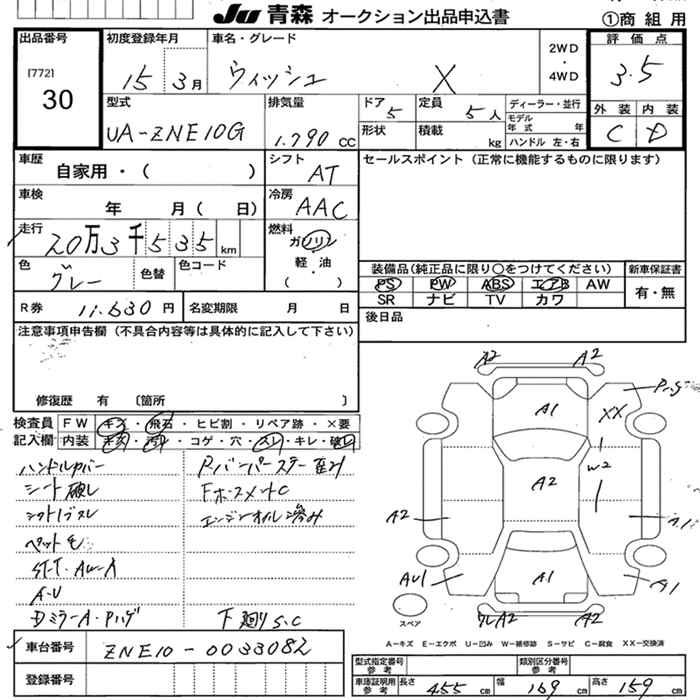 JU 青森 オークション出品申込書
①商組用
出品番号
[772]
30
初度登録年月
15 3月
車名・グレード
ウィッシュ X
2WD
・
4WD
評価点
3.5
外装 内装
C D
型式
UA-ZNE10G
排気量
1.790 CC
ドア 5
定員 5人
ディーラー・並行
モデル年式 年
形状
積載 kg
ハンドル 左・右
車歴
自家用・( )
シフト
AT
セールスポイント (正常に機能するものに限ります)
車検
年 月( 日)
冷房
AAC
走行
20万3千535km
燃料
ガソリン
軽・油
( )
色
グレー
色替
色コード
装備品(純正品に限り○をつけてください)
PS PW ABS エアB AW
SR ナビ TV カワ
新車保証書
有・無
R券
11.630円
名変期限 月 日
後日品
注意事項申告欄 (不具合内容等は具体的に記入して下さい)
修復歴 有 〔箇所 〕
検査員記入欄
FW キズ・飛石・ヒビ割・リペア跡・×要
内装 キズ・汚れ・コゲ・穴・スレ・キレ・破レ
ハンドルカバー
シート破レ
シフトノブスレ
ペット毛
A-U
DミラーA・Pハゲ
Rバンパーステー歪み
エンジンオイル滲み
下廻りS.C
A2 A2
A1
Pハゲ
XX
W2
A2
A2
AU1
A1
A1
A2
スペア
A-キズ E-エクボ U-凹み W-補修跡 S-サビ C-腐食 XX-交換済
車台番号
ZNE10-0033082
登録番号
型式指定番号 参考
類別区分番号 参考
車庫証明用 参考
長さ 455cm
幅 169cm
高さ 159cm